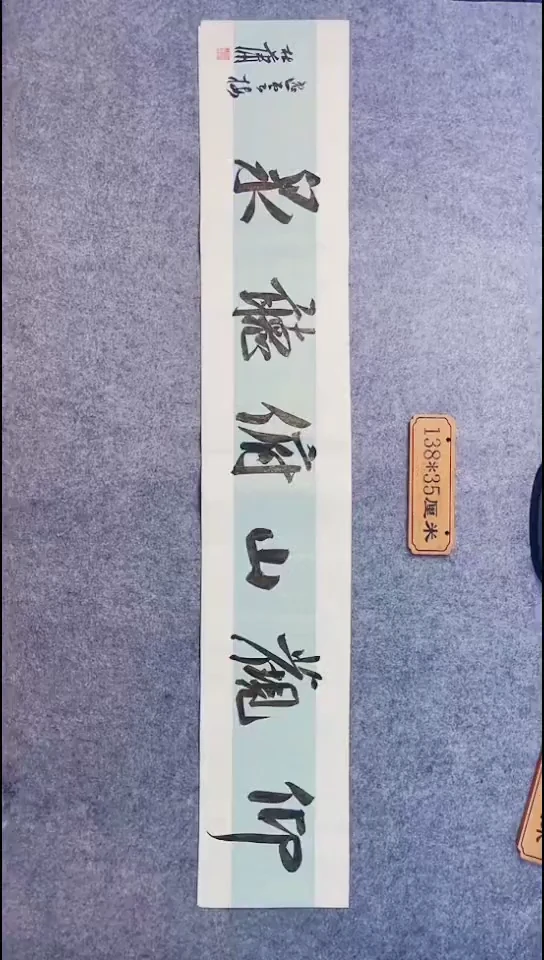 仰觀山俯聽泉
138*35厘米